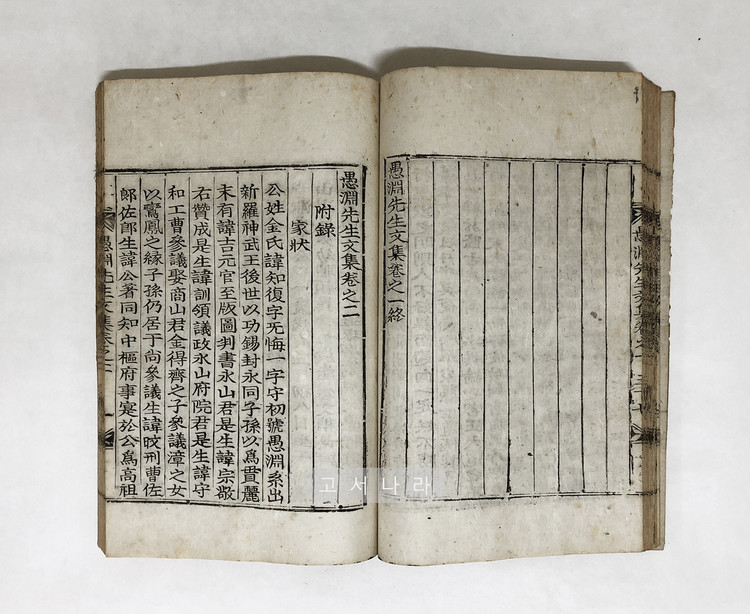 愚淵先生文集卷之一
愚淵先生文集卷之一終
愚淵先生文集卷之二
附錄
家狀
公姓金氏諱知復字无悔一字守初號愚淵系出
新羅神武王後世以功錫封永同子孫以爲貫麗
末有諱吉元官至版圖判書永山君是生諱宗敬
右贊成是生諱訓領議政永山府院君是生諱守
和工曹參議娶商山君金得齊之子參議漳之女
以鸞鳳之緣子孫仍居于尙參議生諱旼刑曹佐
郞佐郞生諱公著同知中樞府事寔於公爲高祖
愚淵先生文集卷之二
一
고서나라